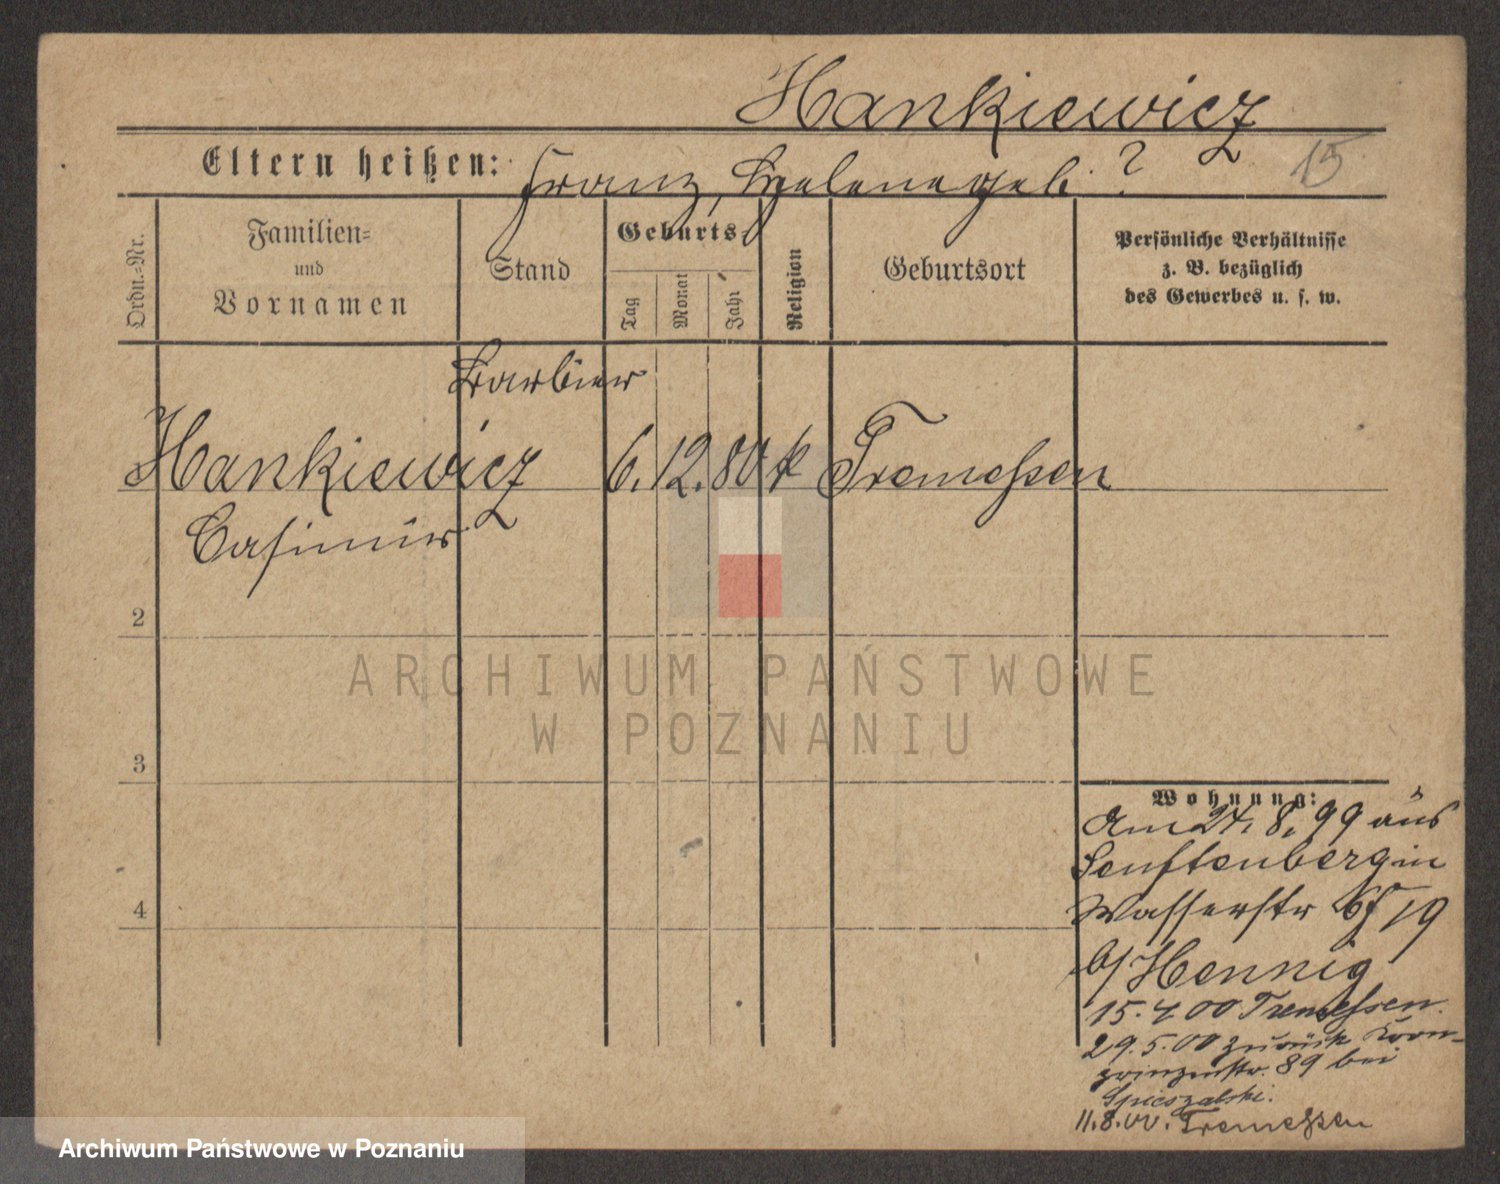 Hankiewicz
Eltern heißen: Franz, Helene geb. ?
15
Ordn.=Nr.
Familien=
und
Vornamen
Stand
Geburts=
Tag
Monat
Jahr
Religion
Geburtsort
Persönliche Verhältnisse
z. B. bezüglich
des Gewerbes u. s. w.
Barbier
Hankiewicz 6. 12. 80 k Tremessen
Casimir
2
3
4
ARCHIWUM PAŃSTWOWE
W POZNANIU
Wohnung:
Am 24. 8. 99 aus
Senftenberg in
Wasserstr 19
b/ Hennig
15. 4. 00 Tremessen.
29. 5. 00 zurück Kron-
prinzenstr. 89 bei
11. 8. 00. Tremessen
Archiwum Państwowe w Poznaniu